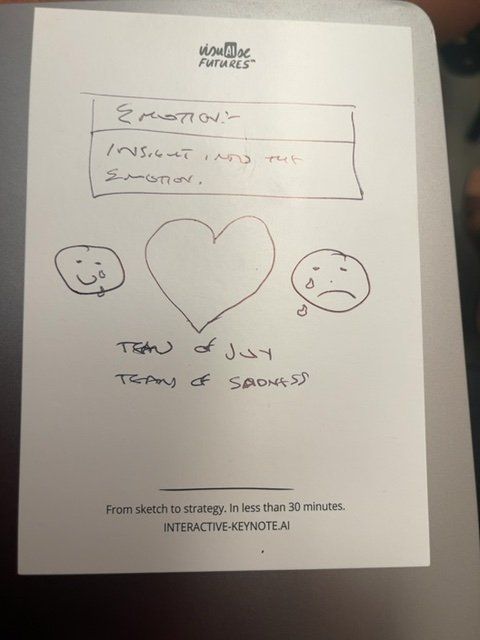 visuAIse
FUTURES™
EMOTION:-
INSIGHT INTO THE
EMOTION.
TEAR OF JOY
TEARS OF SADNESS
From sketch to strategy. In less than 30 minutes.
INTERACTIVE-KEYNOTE.AI